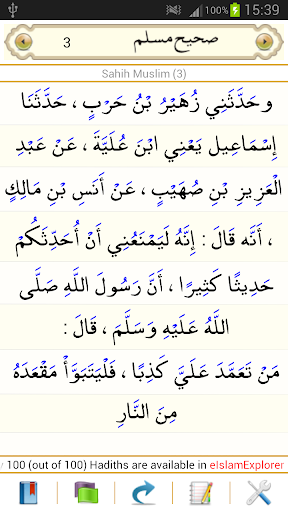 15:39
3 صحيح مسلم
Sahih Muslim (3)
وحَدَّثَنِي زُهَيْرُ بْنُ حَرْبٍ ، حَدَّثَنَا
إِسْمَاعِيل يَعْنِي ابْنَ عُلَيَّةَ ، عَنْ عَبْدِ
الْعَزِيزِ بْنِ صُهَيْبٍ ، عَنْ أَنَسِ بْنِ مَالِكٍ
، أَنَّه قَالَ : إِنَّهُ لَيَمْنَعُنِي أَنْ أُحَدِّثَكُمْ
حَدِيثًا كَثِيرًا ، أَنَّ رَسُولَ اللَّهِ صَلَّى
اللَّهُ عَلَيْهِ وَسَلَّمَ ، قَالَ :
مَنْ تَعَمَّدَ عَلَيَّ كَذِبًا ، فَلْيَتَبَوَّأْ مَقْعَدَهُ
مِنَ النَّارِ
100 (out of 100) Hadiths are available in eIslamExplorer